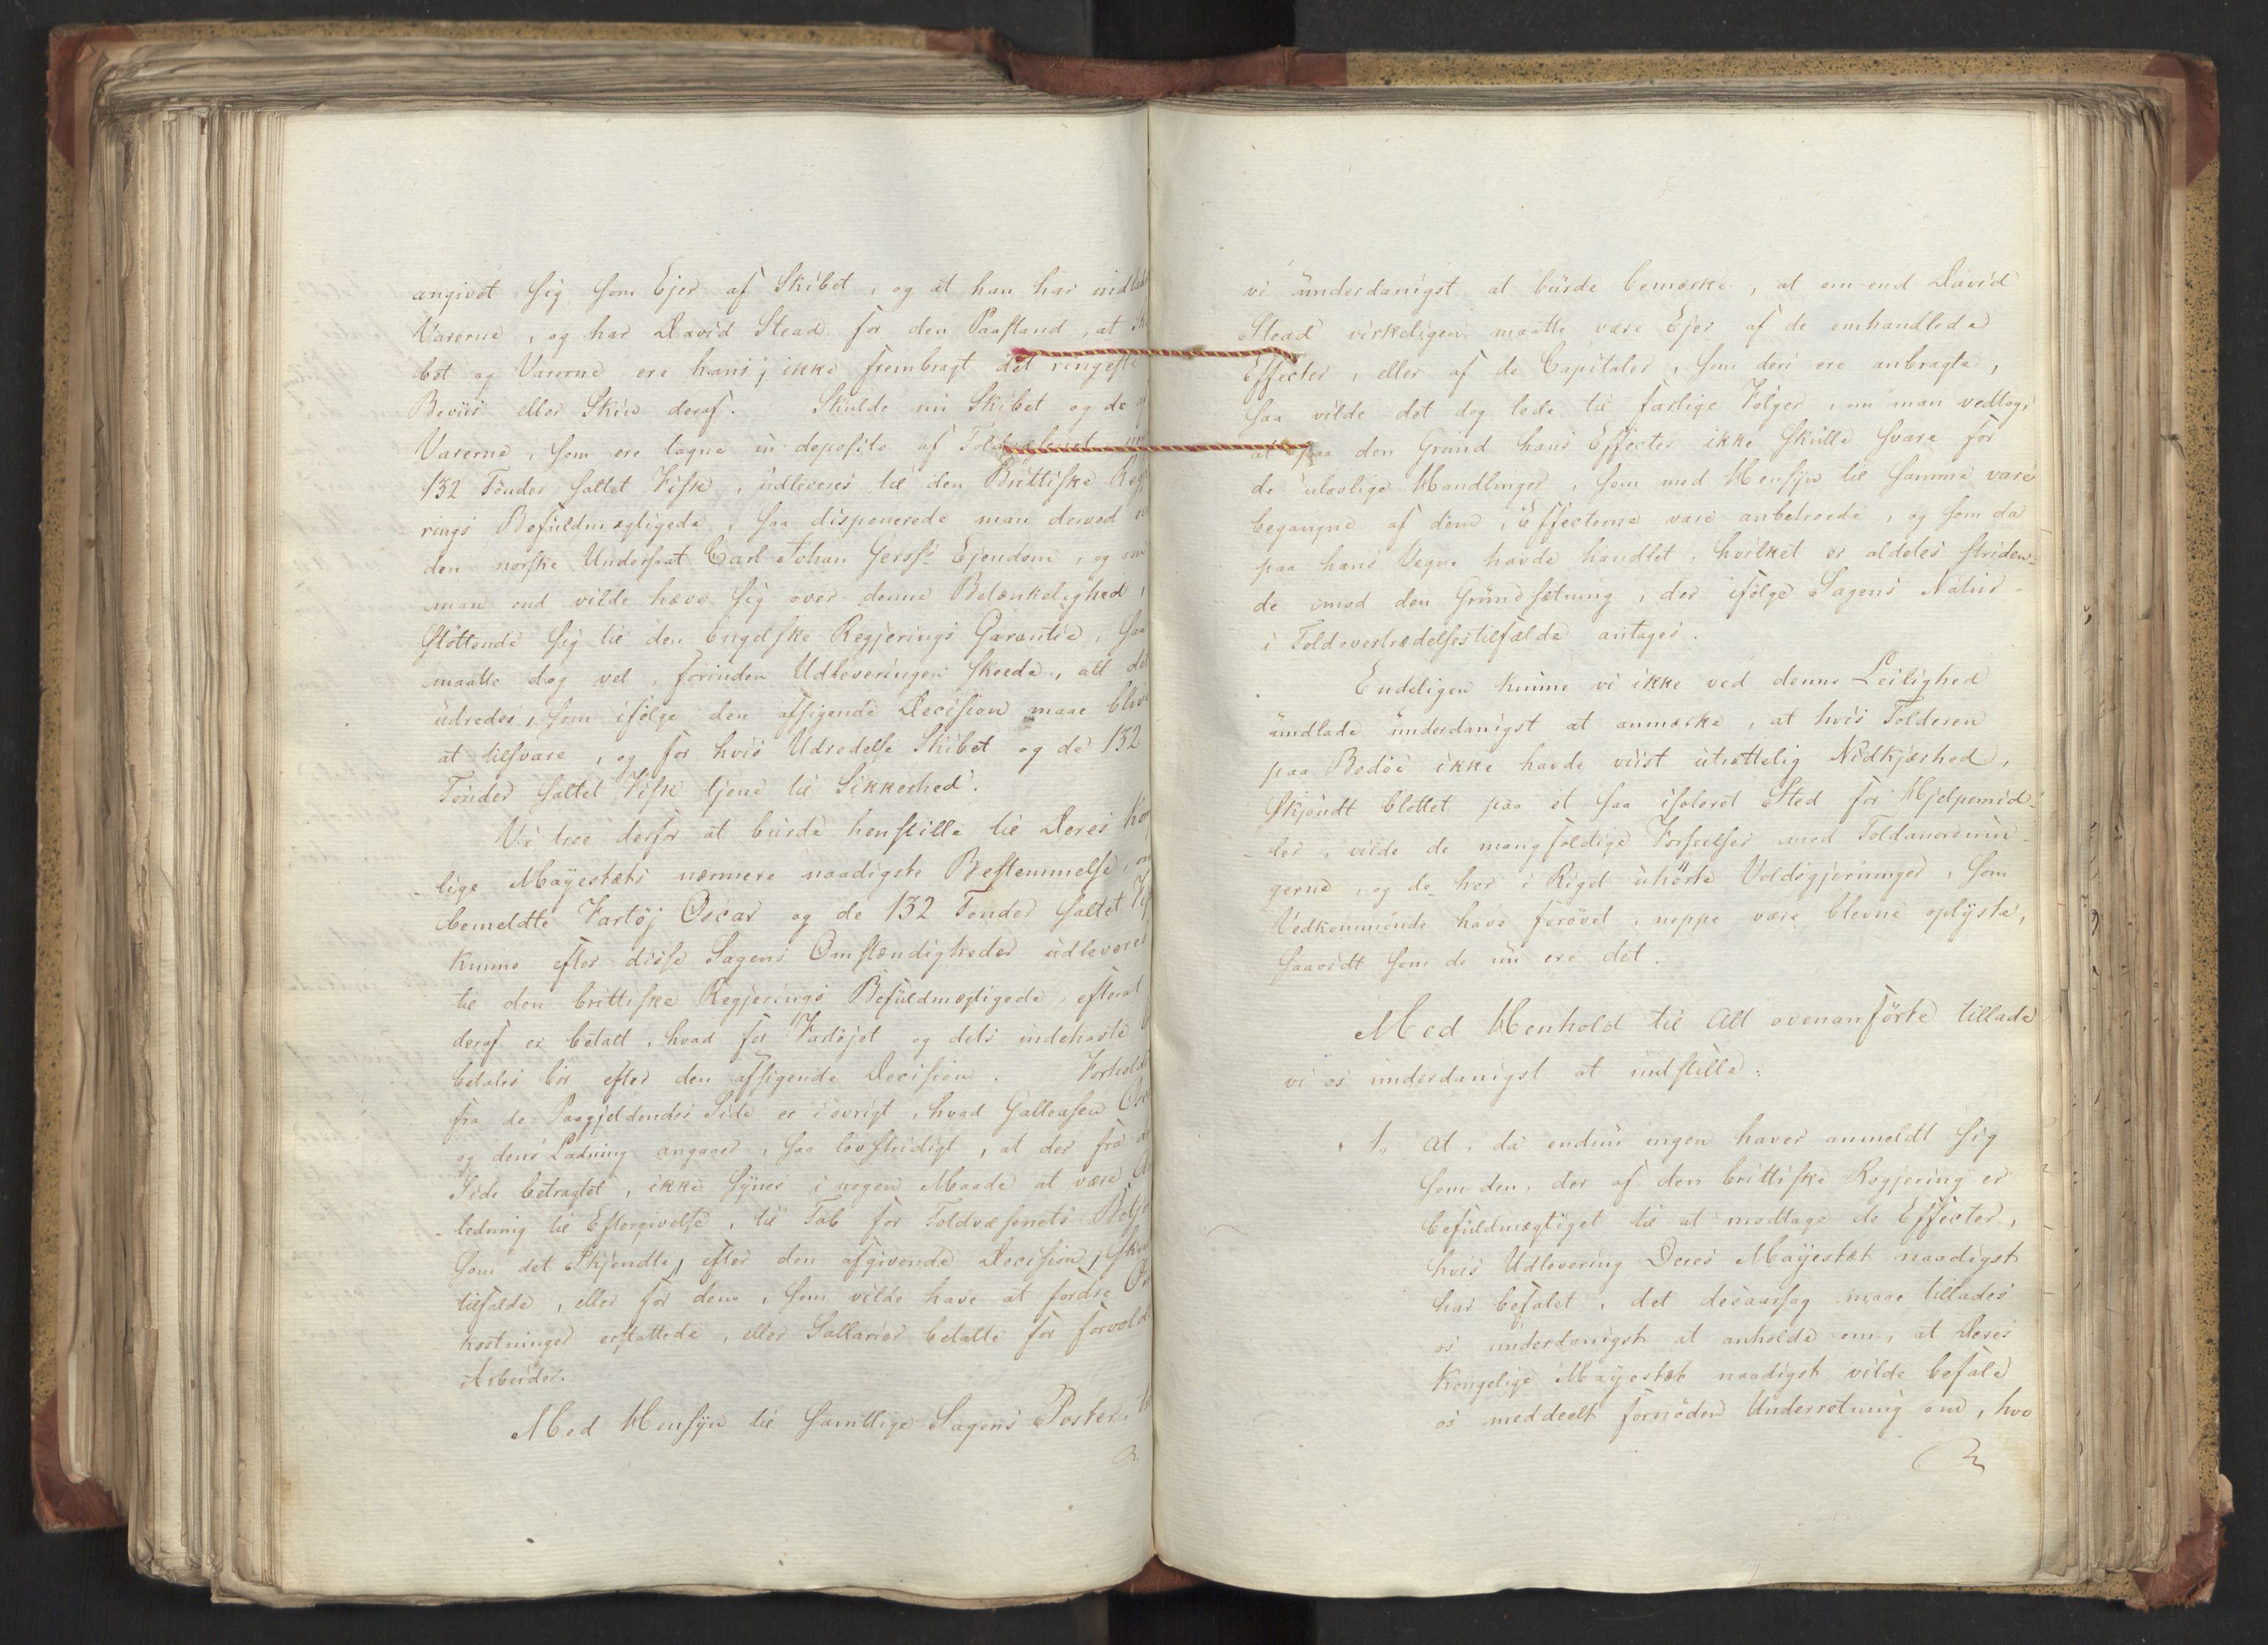 angivet sig som Ejer af Skibet, og at han har indladet
Varerne, og har David Stead for den Paastand, at Ski
bet og Varerne ere hans, ikke frembragt det ringeste
Beviis eller Skin deraf. Skulde nu Skibet og de
Varerne, som ere tagne in deposito af Toldvæsenet,
132 Tønder saltet Fisk, udleveres til den Brittiske Regje
rings Befuldmægtigede, saa disponerede man derved
den norske Undersaat Carl Johan Gerss's Ejendom, og om
man end vilde hæve sig over denne Betænkelighed,
støttende sig til den Engelske Regjerings Garantie, saa
maatte dog vel, forinden Udleveringen skeede, alt det
udredes, som ifølge den afsigende Decision maae blive
at tilsvare, og for hvis Udredelse Skibet og de 132
Tønder saltet Fisk tjene til Sikkerhed.
Vi troe derfor at burde henstille til Deres Konge
lige Mayestæts nærmere naadigste Bestemmelse, om
bemeldte Fartøj Oscar og de 132 Tønder saltet Fisk
kunne efter disse Sagens Omstændigheder udleveres
til den brittiske Regjerings Befuldmægtigede, efterat
deraf er betalt, hvad for Fartøjet og dets indehavte
betales bør efter den afsigende Decision. Forholdet
fra de Paagjeldendes Side er iøvrigt, hvad Galleasen Oscar
og dens Ladning angaaer, saa lovstridigt, at der fra
Side betragtet, ikke synes i nogen Maade at være An
ledning til Eftergivelse, til Tab for Toldvæsenets Betje
som det Skjendte, efter den afgivende Decision, skul
tilfalde, eller for dem, som vilde have at fordre Om
kostninger erstattede, eller Sallarier betalte for forvoldte
Arbeider.
Med Hensyn til samtlige Sagens Poster,
vi underdanigst at burde bemærke, at om end David
Stead virkeligen maatte være Ejer af de omhandlede
Effecter, eller af de Capitaler, som deri ere anbragte,
saa vilde det dog lede til farlige Følger, om man vedtog,
at paa den Grund hans Effecter ikke skulle svare for
de ulovlige Handlinger, som med Hensyn til samme vare
begangne af dem, Effecterne vare anbetroede, og som da
paa hans Vegne havde handlet, hvilket er aldeles striden-
de imod den Grundsætning, der ifølge Sagens Natur
i Toldovertrædelsestilfælde antages.
Endeligen kunne vi ikke ved denne Leilighed
undlade underdanigst at anmærke, at hvis Tolderen
paa Bodøe ikke havde viist utrættelig Nidkjærhed,
skjøndt blottet paa et saa isoleret Sted for Hjelpemid-
ler, vilde de mangfoldige Forseelser mod Toldanordnin-
gerne, og de her i Riget uhørte Voldsgjerninger, som
Vedkommende have forøvet, neppe være blevne oplyste,
saavidt som de nu ere det.
Med Henhold til Alt ovenanførte tillade
vi os underdanigst at indstille:
1, at, da endnu ingen haver anmeldt sig
som den, der af den brittiske Regjering er
befuldmægtiget til at modtage de Effecter,
hvis Udlevering Deres Mayestæt naadigst
har befalet, det desaarsag maae tillades
os underdanigst at anholde om, at Deres
Kongelige Mayestæt naadigst vilde befale
os meddeelt fornøden Underretning om, hvo